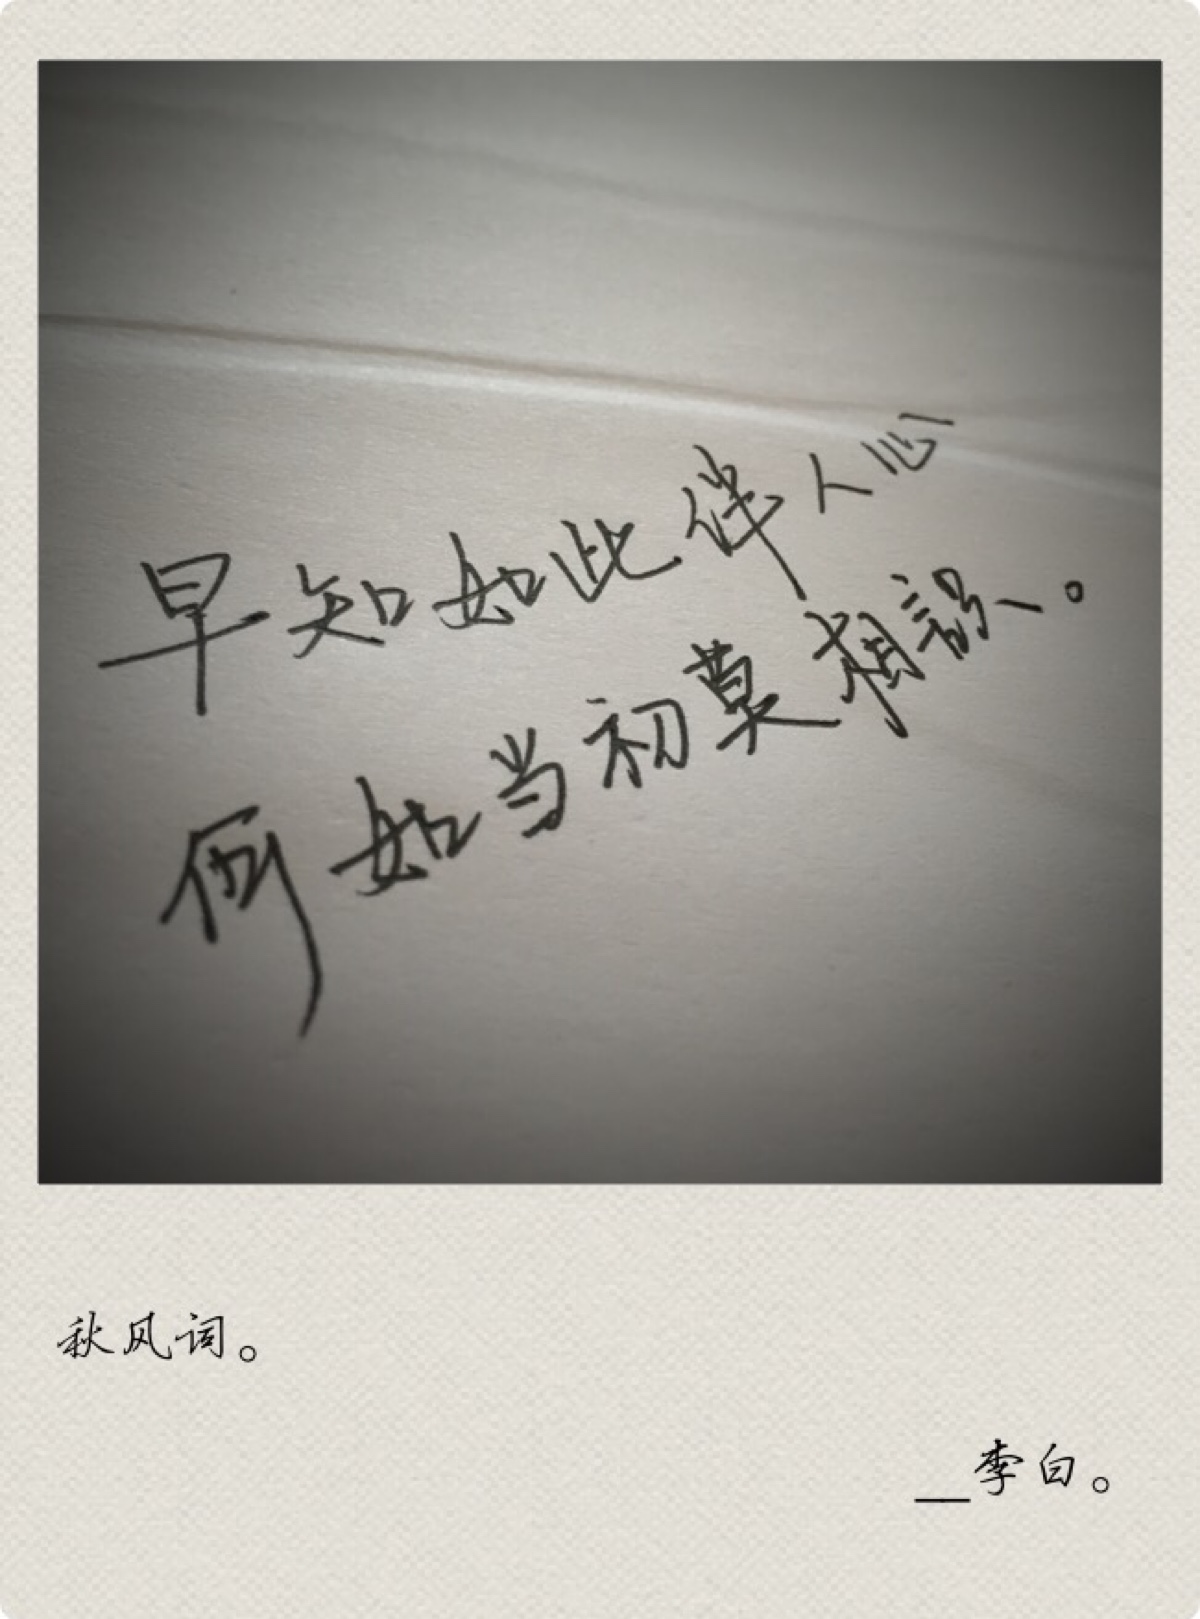 早知如此伴人心
何如当初莫相识。
秋风词。
__李白。